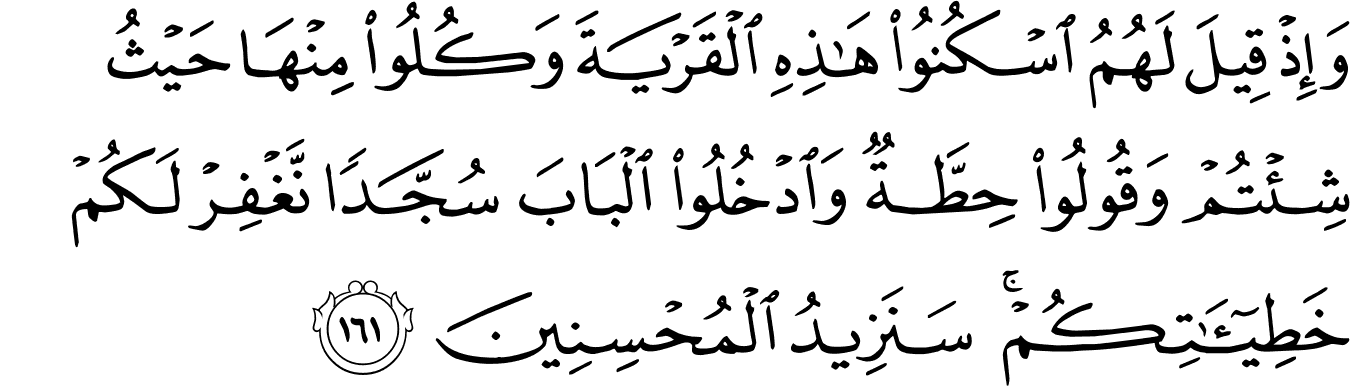 وَإِذْ قِيلَ لَهُمُ ٱسْكُنُوا۟ هَـٰذِهِ ٱلْقَرْيَةَ وَكُلُوا۟ مِنْهَا حَيْثُ
شِئْتُمْ وَقُولُوا۟ حِطَّةٌ وَٱدْخُلُوا۟ ٱلْبَابَ سُجَّدًا نَّغْفِرْ لَكُمْ
خَطِيٓـَٔـٰتِكُمْ ۚ سَنَزِيدُ ٱلْمُحْسِنِينَ ١٦١